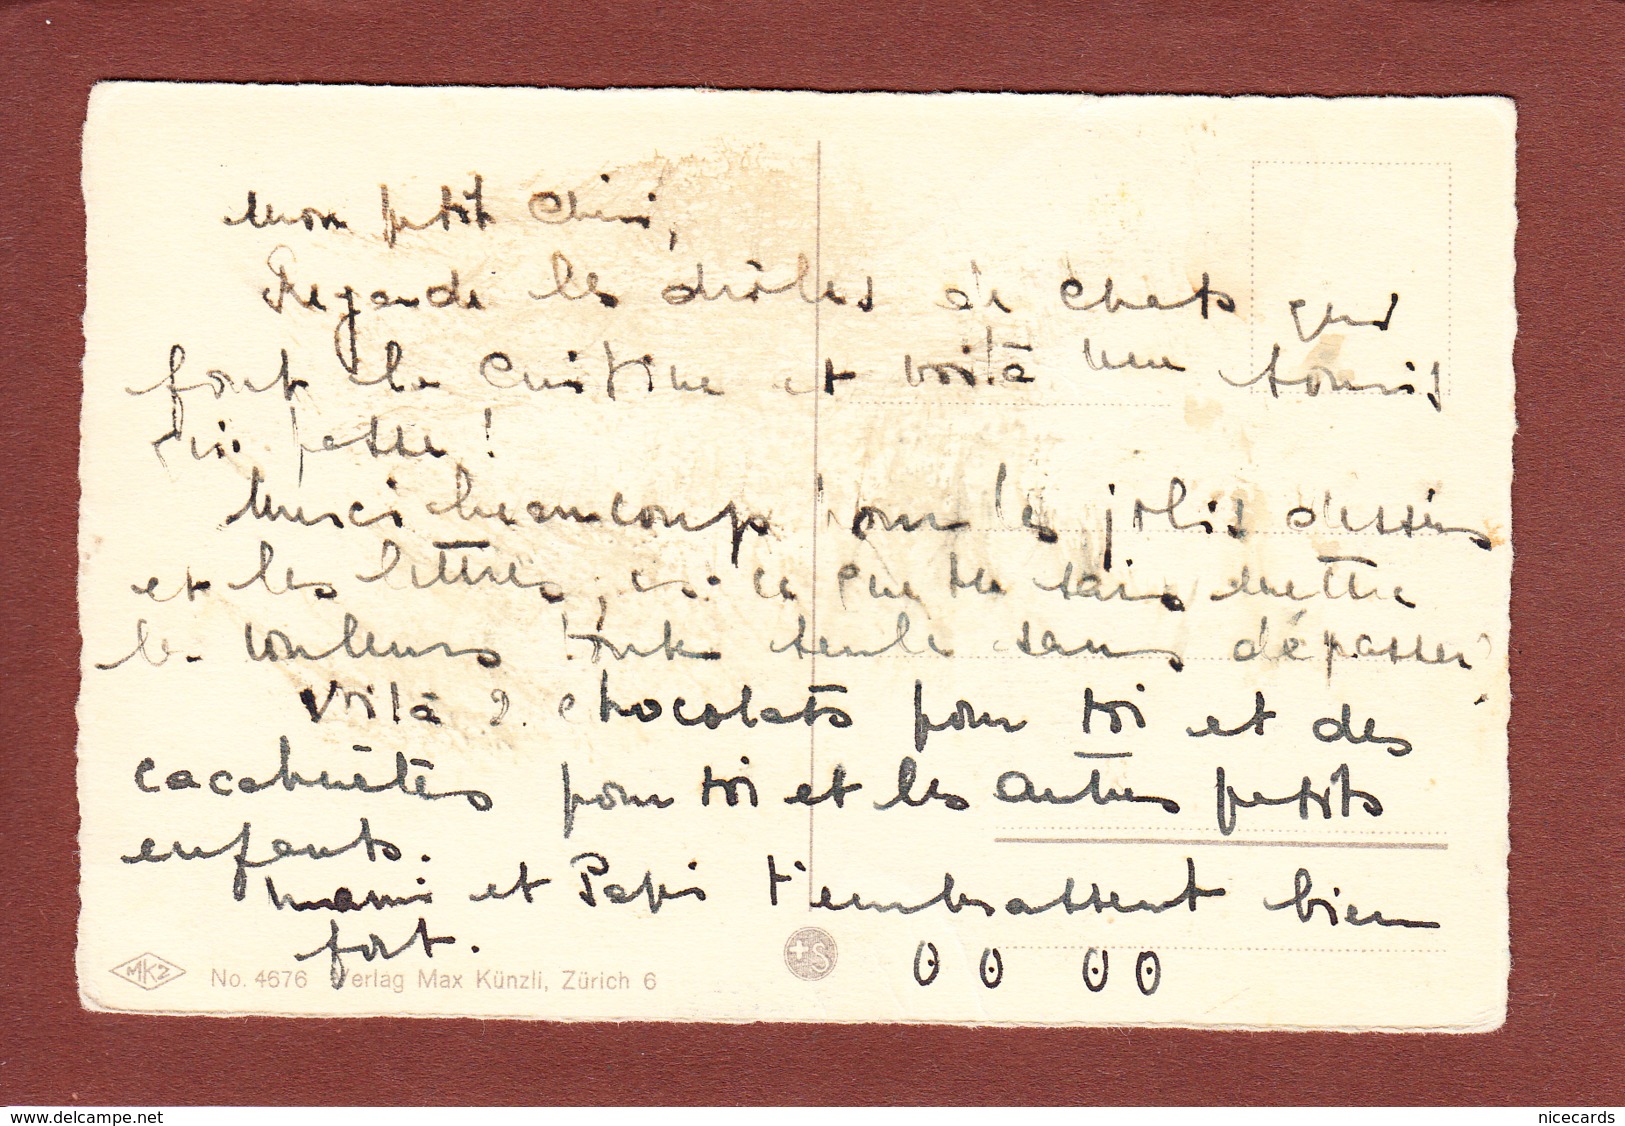 Mon petit Chéri,
Regarde les drôles de chats qui
font la cuisine et voilà une souris
qui passe !
Merci beaucoup pour les jolis dessins
et les lettres, est-ce que tu sais mettre
les couleurs toute seule sans dépasser ?
Voilà 2 chocolats pour toi et des
cacahuètes pour toi et les autres petits
enfants.
Mami et Papi t'embrassent bien
fort.
MK2
No. 4676 Verlag Max Künzli, Zürich 6
+S
www.delcampe.net
nicecards